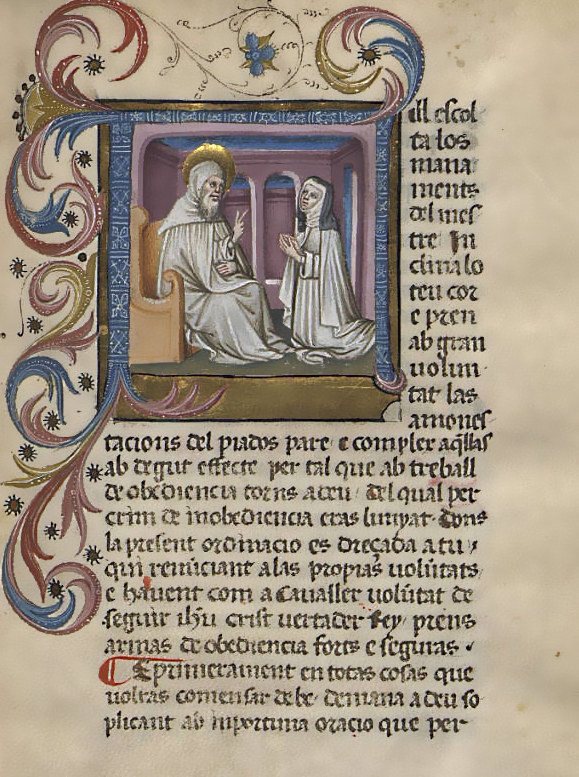 ill escol
ta los
mana
ments
del mes
tre In
clina lo
teu cor
e pren
ab gran
uolun
tat las
amones
tacions del piados pare e compler aqllas
ab degut effecte per tal que ab treball
de obediencia torns a deu del qual per
crim de inobediencia eras lunyat dons
la present ordinacio es dreçada a tu
qui renuciant a las propias uolutats
e hauent com a Cauasller uolutat de
seguir ihu crist uertader Rey prens
armas de obediencia forts e seguras
E primerament en totas cosas que
uoltas comensar debe demana a deu so
plicant ab inportuna oracio que per